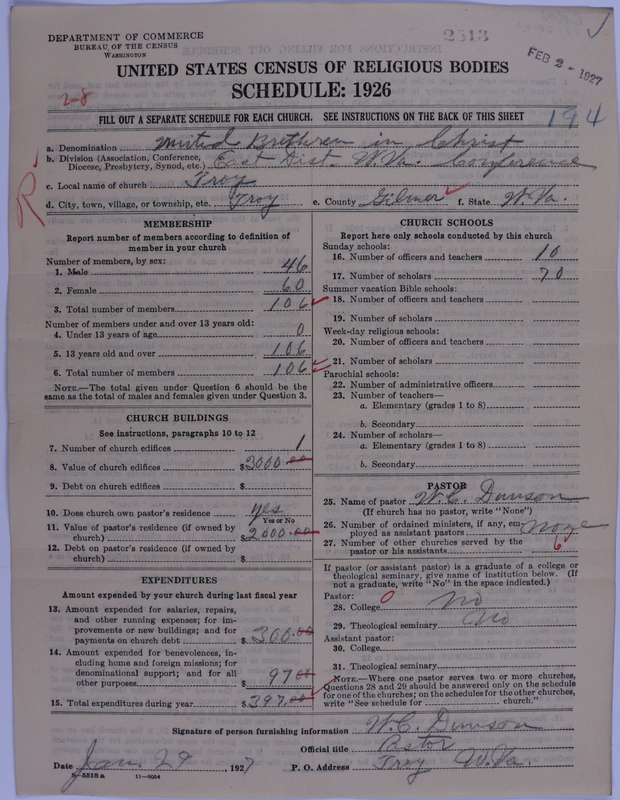 DEPARTMENT OF COMMERCE
BUREAU OF THE CENSUS
WASHINGTON
2513
FEB 2 - 1927
UNITED STATES CENSUS OF RELIGIOUS BODIES
SCHEDULE: 1926
2-8
FILL OUT A SEPARATE SCHEDULE FOR EACH CHURCH. SEE INSTRUCTIONS ON THE BACK OF THIS SHEET
194
a. Denomination United Brethren in Christ
b. Division (Association, Conference, Diocese, Presbytery, Synod, etc.) East Dist. W.Va. Conference
c. Local name of church Troy
d. City, town, village, or township, etc. Troy e. County Gilmer f. State W.Va.
R
MEMBERSHIP
Report number of members according to definition of
member in your church
Number of members, by sex:
1. Male 46
2. Female 60
3. Total number of members 106
Number of members under and over 13 years old:
4. Under 13 years of age 0
5. 13 years old and over 106
6. Total number of members 106
NOTE.—The total given under Question 6 should be
same as the total of males and females given under Question 3.
CHURCH BUILDINGS
See instructions, paragraphs 10 to 12
7. Number of church edifices 1
8. Value of church edifices $3000.00
9. Debt on church edifices $
10. Does church own pastor's residence yes
Yes or No
11. Value of pastor's residence (if owned by
church) $2000.00
12. Debt on pastor's residence (if owned by
church) $
EXPENDITURES
Amount expended by your church during last fiscal year
13. Amount expended for salaries, repairs,
and other running expenses; for im-
provements or new buildings; and for
payments on church debt $300.00
14. Amount expended for benevolences, in-
cluding home and foreign missions; for
denominational support; and for all
other purposes 97 00
15. Total expenditures during year $397.00
CHURCH SCHOOLS
Report here only schools conducted by this church
Sunday schools:
16. Number of officers and teachers 10
17. Number of scholars 70
Summer vacation Bible schools:
18. Number of officers and teachers
19. Number of scholars
Week-day religious schools:
20. Number of officers and teachers
21. Number of scholars
Parochial schools:
22. Number of administrative officers
23. Number of teachers—
a. Elementary (grades 1 to 8)
b. Secondary
24. Number of scholars—
a. Elementary (grades 1 to 8)
b. Secondary
PASTOR
25. Name of pastor W.C. Dawson
(If church has no pastor, write "None")
26. Number of ordained ministers, if any, em-
ployed as assistant pastors None
27. Number of other churches served by the
pastor or his assistants 6
If pastor (or assistant pastor) is a graduate of a college or
theological seminary, give name of institution below. (If
not a graduate, write "No" in the space indicated.)
Pastor: 0
28. College No
29. Theological seminary No
Assistant pastor:
30. College
31. Theological seminary
NOTE.—Where one pastor serves two or more churches,
Questions 28 and 29 should be answered only on the schedule
for one of the churches; on the schedules for the other churches,
write "See schedule for church."
Signature of person furnishing information W.C. Dawson
Official title Pastor
Date Jan. 29, 1927 P. O. Address Troy W.Va.
8-5518 a 11-9034